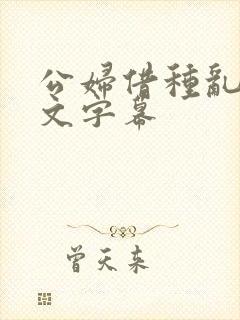 公婦借種亂
文字幕
曾天来